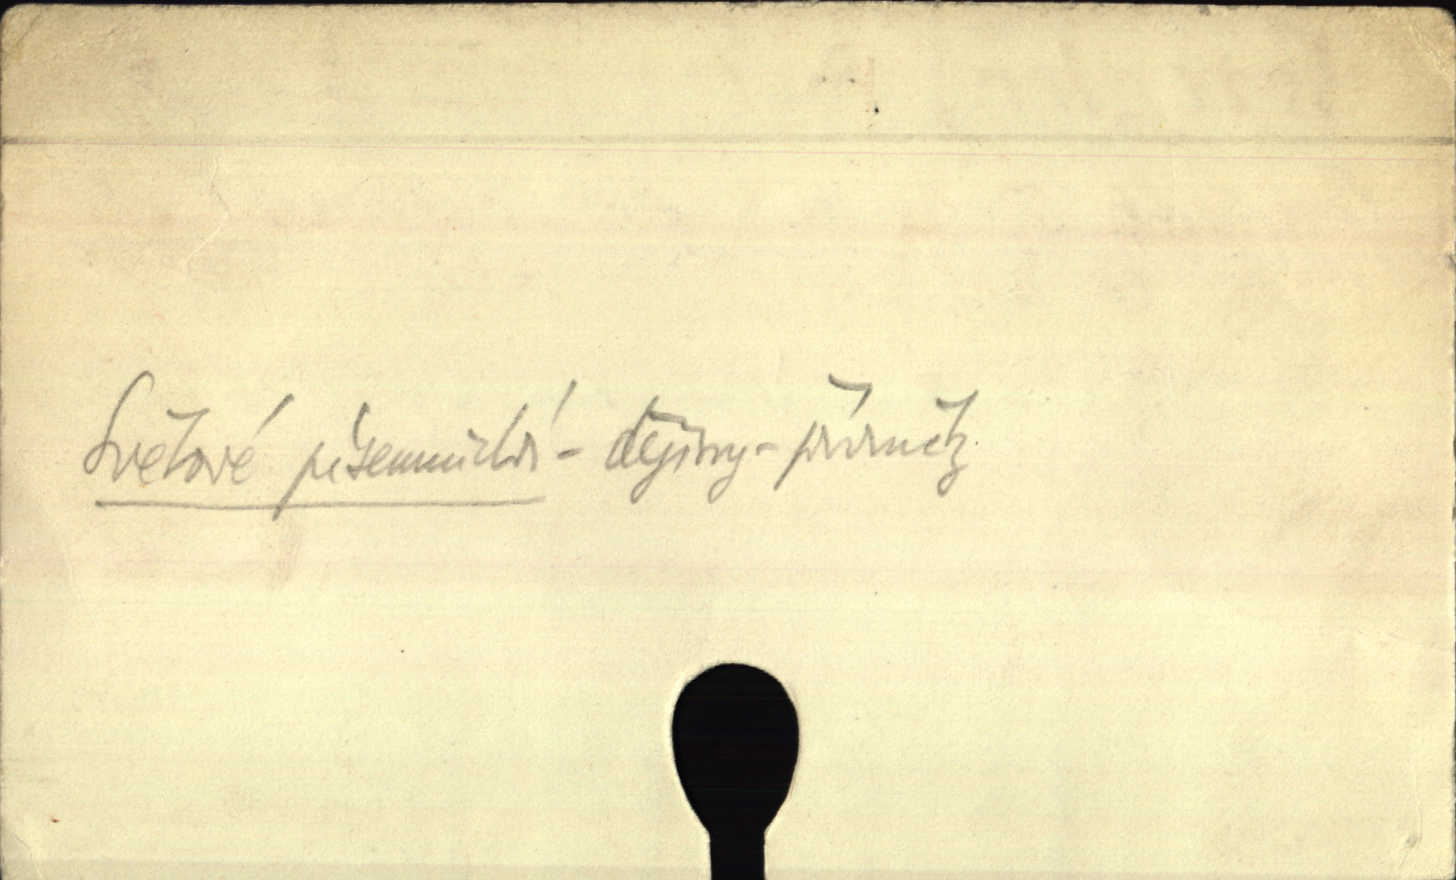 Světové písemnictví - dějiny - příručky